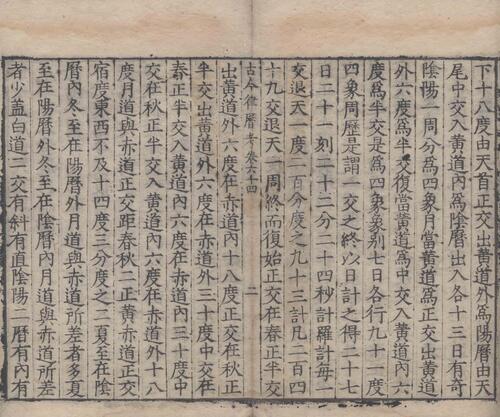 下十八度由天首正交出黄道外爲陽曆由天
尾中交入黄道内爲陰曆出入各十三日有奇
陰陽一周分爲四象月當黄道爲正交出黄道
外六度爲半交復當黄道爲中交入黄道内六
度爲半交是爲四象象别七日各行九十一度
四象周歷是謂一交之終以日計之得二十七
日二十一刻二十二分二十四秒計羅計每一
交退天一度二百分度之九十三計凡二百四
十九交退天一周終而復始正交在春正半交
古今律曆考卷六十四 二
出黄道外六度在赤道内十八度正交在秋正
半交出黄道外六度在赤道外三十度中交在
春正半交入黄道内六度在赤道内三十度中
交在秋正半交入黄道内六度在赤道外十八
度月道與赤道正交距春秋二正黄赤道正交
宿度東西不及十四度三分度之二夏至在陰
曆内冬至在陽曆外月道與赤道所差者多夏
至在陽曆外冬至在陰曆内月道與赤道所差
者少蓋白道二交有斜有直陰陽二曆有内有